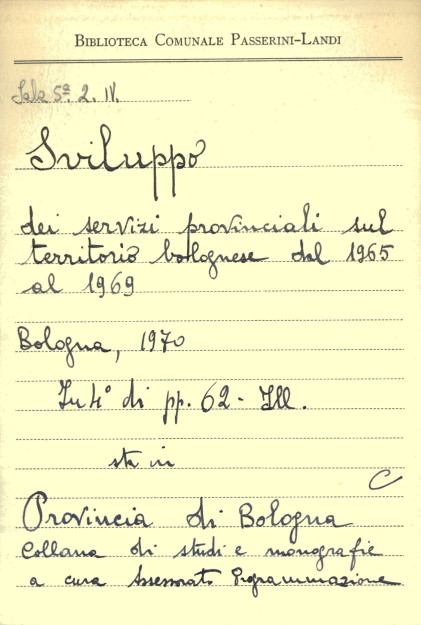 BIBLIOTECA COMUNALE PASSERINI-LANDI
Sala 5ª 2. IV.
Sviluppo
dei servizi provinciali sul
territorio bolognese dal 1965
al 1969
Bologna, 1970
In 4° di pp. 62 - Ill.
sta in
C
Provincia di Bologna
Collana di studi e monografie
a cura Assessorato Programmazione